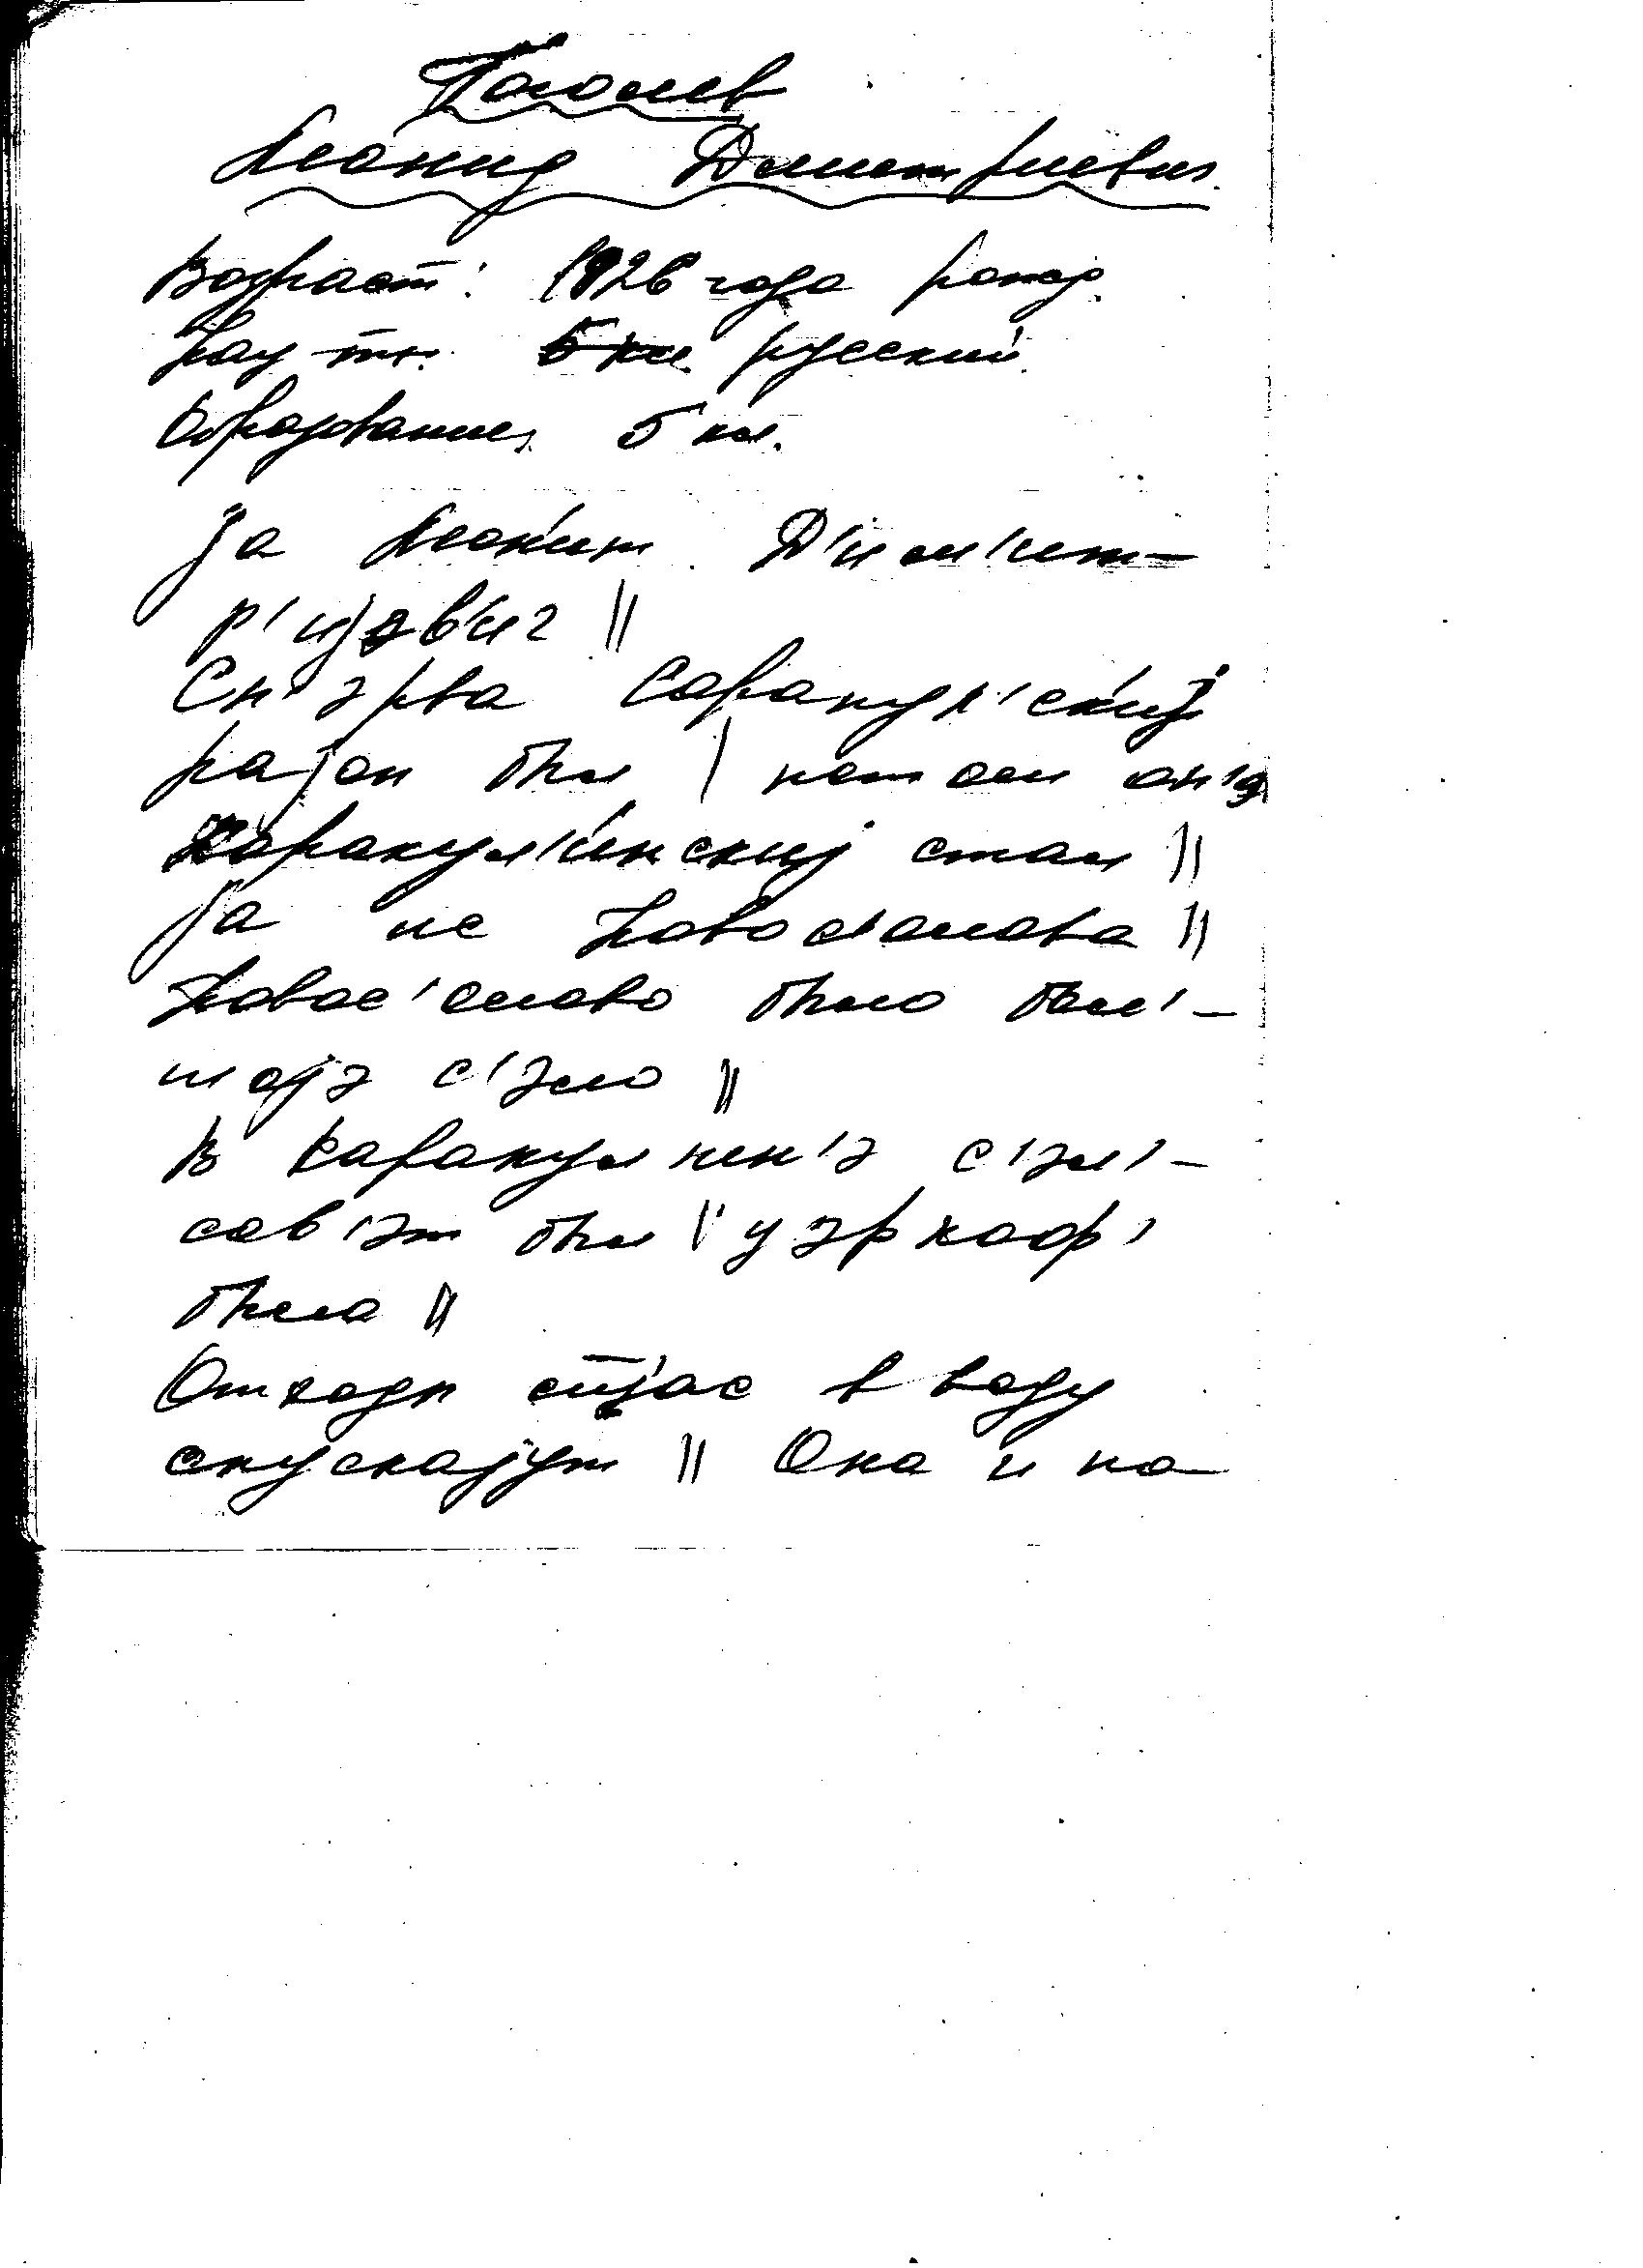 Гоголев
Леонид Дмитриевич
Возраст: 1926 года рожд.
Нац-ть. 5 кл. русский.
Образование, 5 кл.
Ja Леон'ит Д'им'ит-
р'иjэв'ич ||
Сп'эрва Сарапул'ск'иj
раjон был | потом оп'э
Каракул'инскиj стал ||
Ja из Новосёлова ||
Новос'олово было бал'-
шоjэ с'эло ||
В Каракул'ин'э с'эл'-
сов'эт был | у
была ||
Отходы в воду
спускаjут || Она и по-